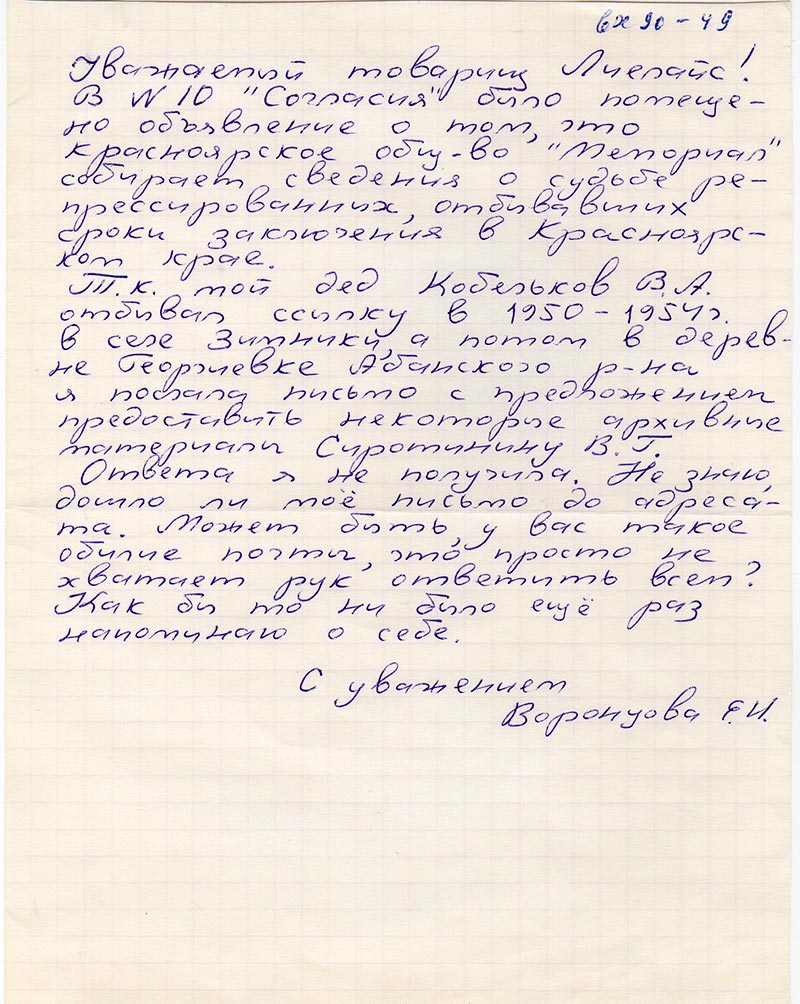 вх 90-49
Уважаемый товарищ Лиепайс!
В N 10 "Согласия" было помеще-
но объявление о том, что
красноярское общ-во "Мемориал"
собирает сведения о судьбе ре-
прессированных, отбывавших
сроки заключения в Краснояр-
ском крае.
Т.к. мой дед Кобезьков В.А.
отбывал ссылку в 1950-1954г.
в селе Зимники, а потом в дерев-
не Георгиевке Абанского р-на
я послала письмо с предложением
предоставить некоторые архивные
материалы Сиротинину В.Г.
Ответа я не получила. Не знаю,
дошло ли моё письмо до адреса-
та. Может быть, у вас такое
обилие почты, что просто не
хватает рук ответить всем?
Как бы то ни было ещё раз
напоминаю о себе.
С уважением
Воронцова Е.И.